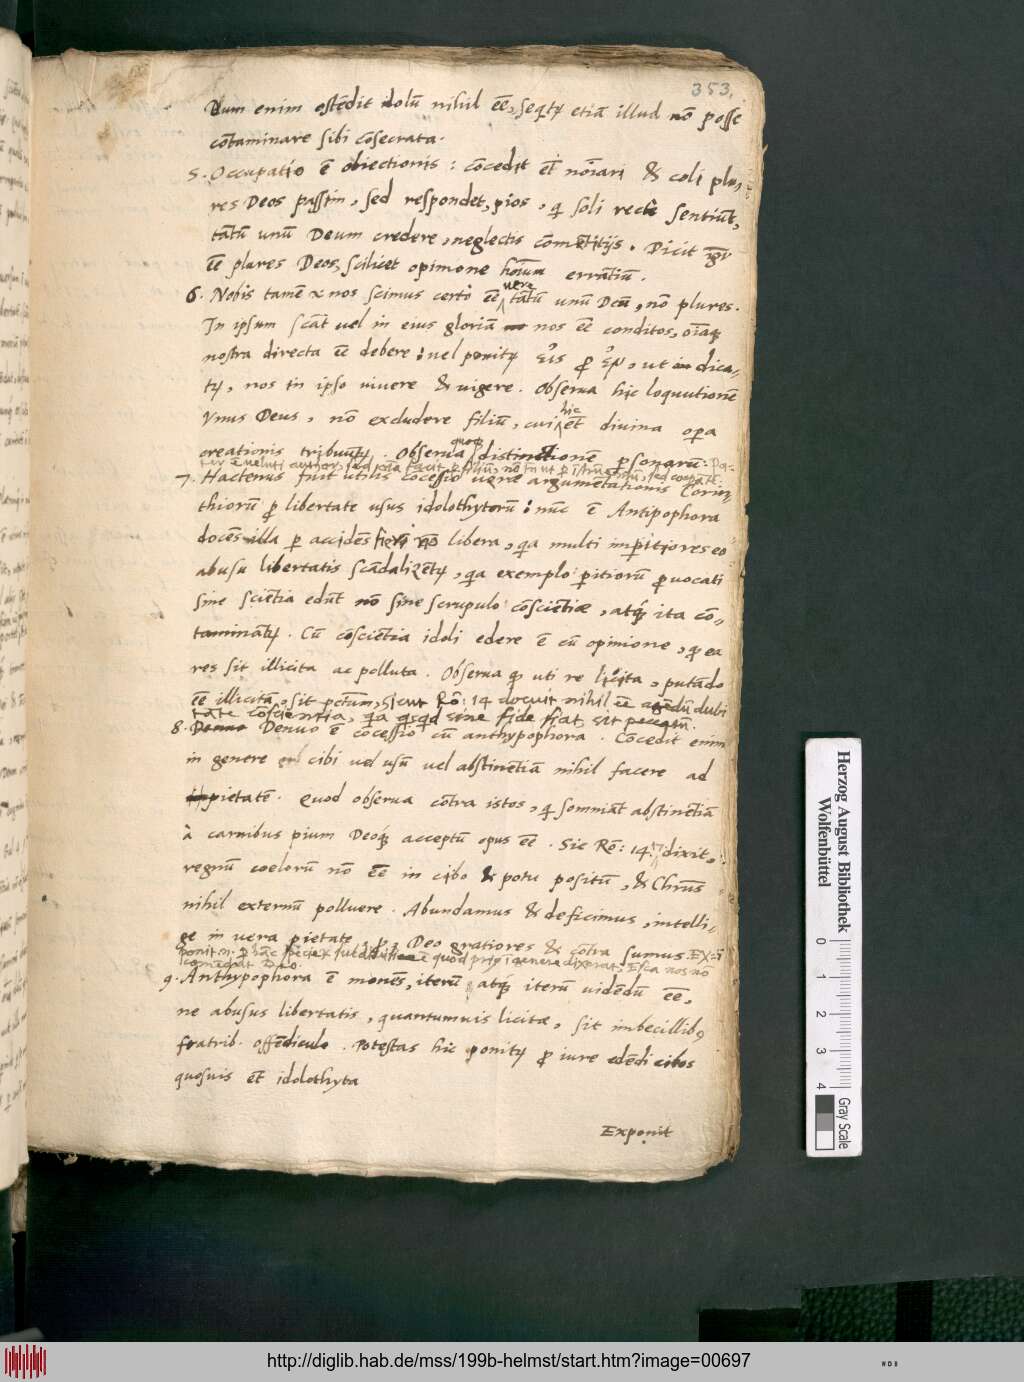 353.
Dum enim ostēdit idolū nihil eē, seqtr etiā illud nō posse
cōtaminare sibi cōsecrata.
5. Occupatio ē obiectionis: cōcedit et nōīari & coli plu,
res Deos passim, sed respondet, pios, qi soli recte sentiūt,
tātū unū Deum credere, neglectis cōmētitijs. Dicit
eē plures Deos, scilicet opinione hoīum errātiū.
6. Nobis tamē nos scimus certò eē vere tātū unū Deū, nō plures.
In ipsum scāt uel in eius gloriā nos eē conditos, oīaq
nostra directa eē debere: uel ponitr εἰς p ἐν, ut indica,
tr, nos in ipso uiuere & uigere. Obserua hic loquutionē
Vnus Deus, nō excludere filiū, cui hic et diuina opa
creationis tribuūtr. Obserua quoq distinctionē psonarū: Pa,
7. Hactenus fuit utilis cōcessio uerae argumētationis Corin,
thiorū p libertate usus idolothytorū: nūc ē Antipophora
docēs illa p accidēs fieri nō libera, qa multi impitiores eo
abusu libertatis scādalizētr, qa exemplo pitiorū puocati
sine sciētia edūt nō sine scrupulo cōsciētiæ, atq ita cō,
taminātr. Cū cōsciētia idoli edere ē cū opinione, qd ea
res sit illicita ac polluta. Obserua qd uti re licita, putādo
eē illicitā, sit pctum, sicut Rō: 14 docuit nihil eē agēdū dubi
tāte cōscientia, qa qsqd sine fide fiat, sit peccatū.
8. Denuo Denuo ē cōcessio cū anthypophora. Cōcedit enim
in genere cibi uel usū uel abstinētiā nihil facere ad
pietatē. Quod obserua cōtra istos, qi somniāt abstinētiā
à carnibus pium Deoq acceptū opus eē. Sic Rō: 14. dixit,
regnū coelorū nō eē in cibo & potu positū, & Chrūs
nihil externū polluere. Abundamus & deficimus, intelli,
ge in uera pietate, Deo gratiores & cōtra sumus.
9. Anthypophora ē monēs, iterū atq iterū uidēdū eē,
ne abusus libertatis, quantumuis licitæ, sit imbecillib9
fratrib. offēdiculo. Potestas hic ponitr p iure edēdi cibos
quosuis et idolothyta
Exponit
Herzog August Bibliothek
Wolfenbüttel
0 1 2 3 4
Gray Scale
http://diglib.hab.de/mss/199b-helmst/start.htm?image=00697
WDB